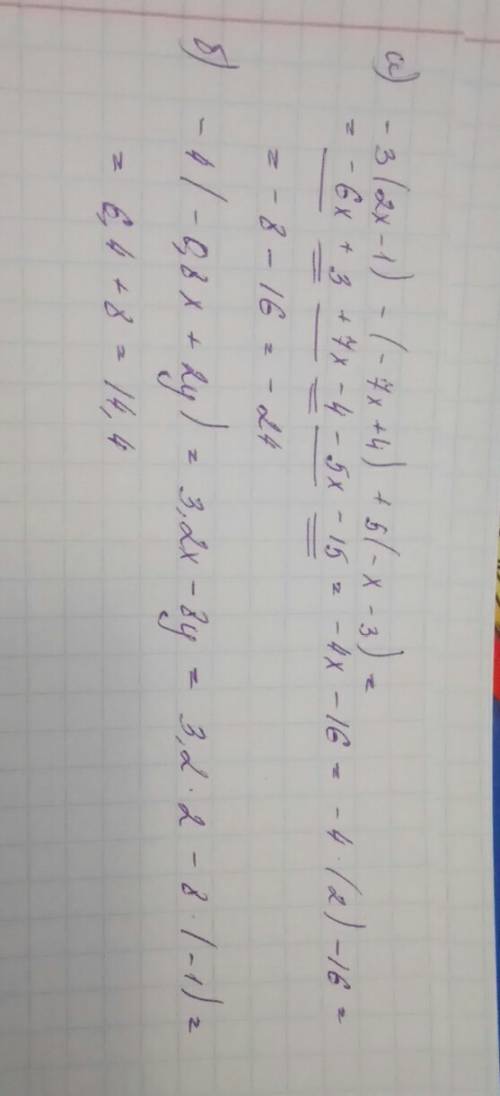 а) - 3(2x-1) - (-7x+4) + 5(-x-3) =
= -6x + 3 + 7x - 4 - 5x - 15 = -4x - 16 = -4·(2) -16 =
= -8 - 16 = -24
б) -4(-0,8x + 2y) = 3,2x - 8y = 3,2·2 - 8·(-1) =
= 6,4 + 8 = 14,4